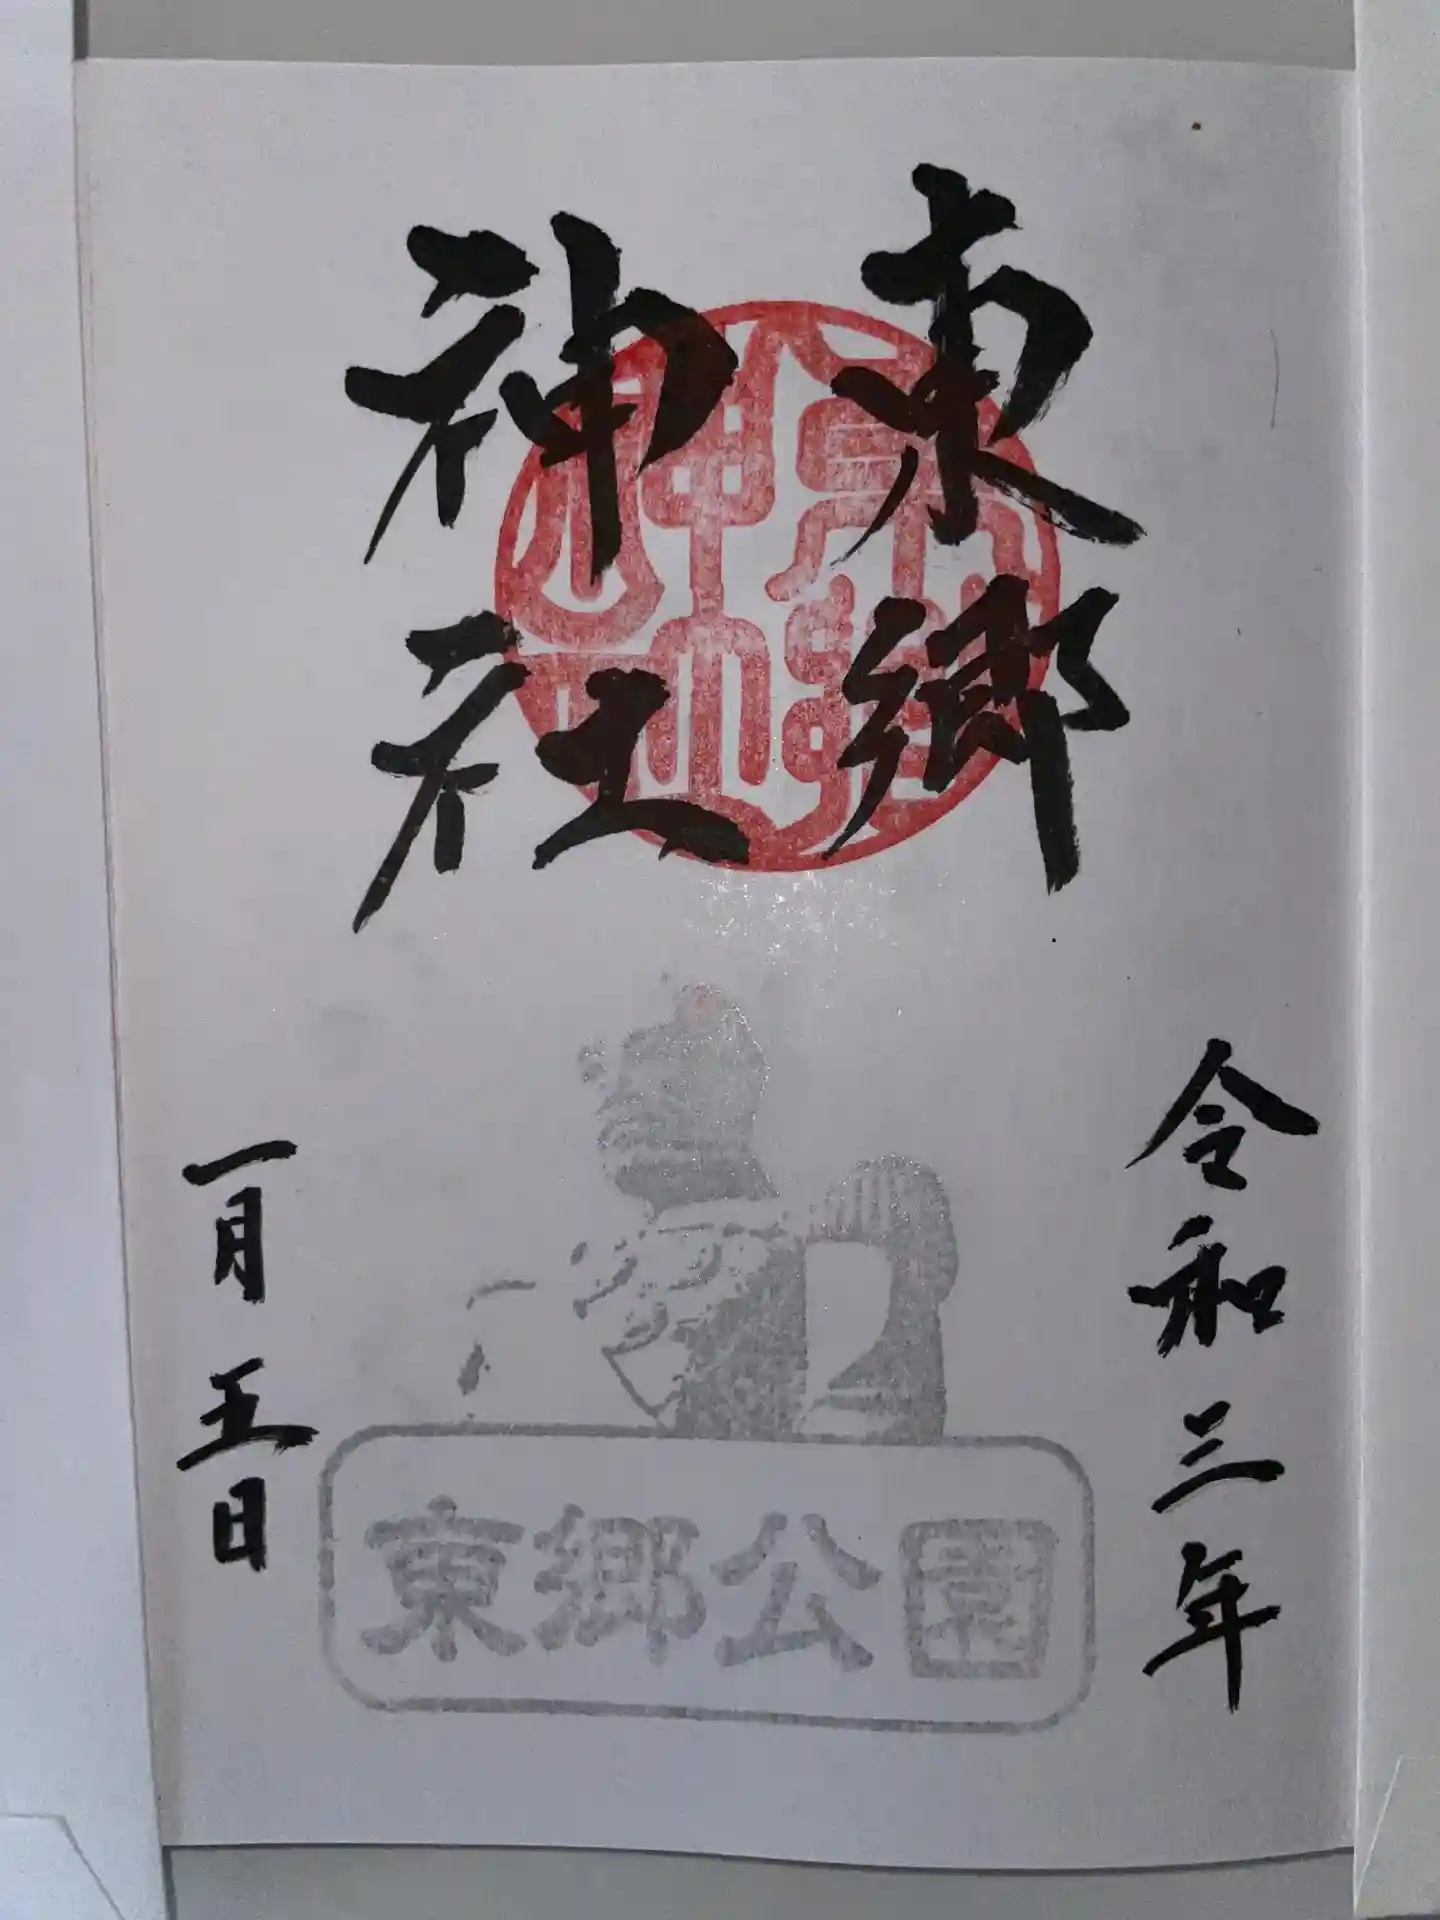 東郷
神社
令和三年
一月五日
東郷公園